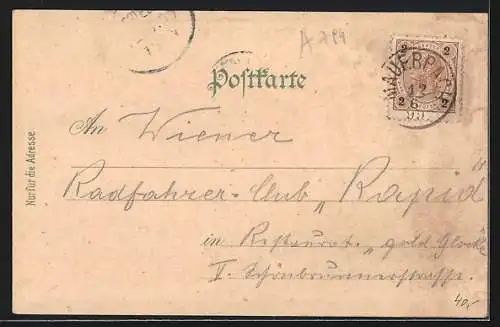 A 784
Postkarte
2 2
MAUERBACH
12
6
99
2 2
An Wiener
Radfahrer-Club „Rapid"
in Restaurat. „gold. Glocke
V. Schönbrunnerstrasse.
Nur für die Adresse
40,-